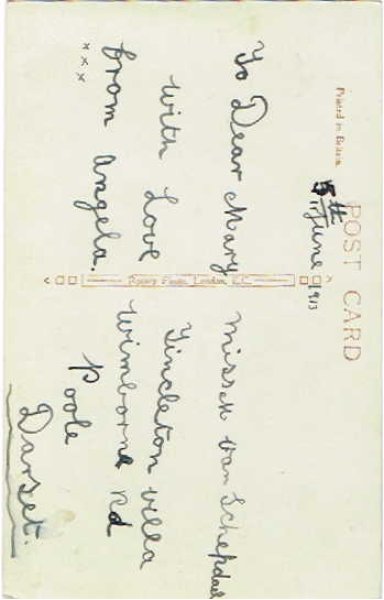 Printed in Britain
POST CARD
5th June 1913
To Dear Mary
with Love
from Angela.
x x x
Rotary Photo, London, E.C.
Miss M van Schepdael
Tincleton Villa
Wimborne Rd
Poole
Darset.